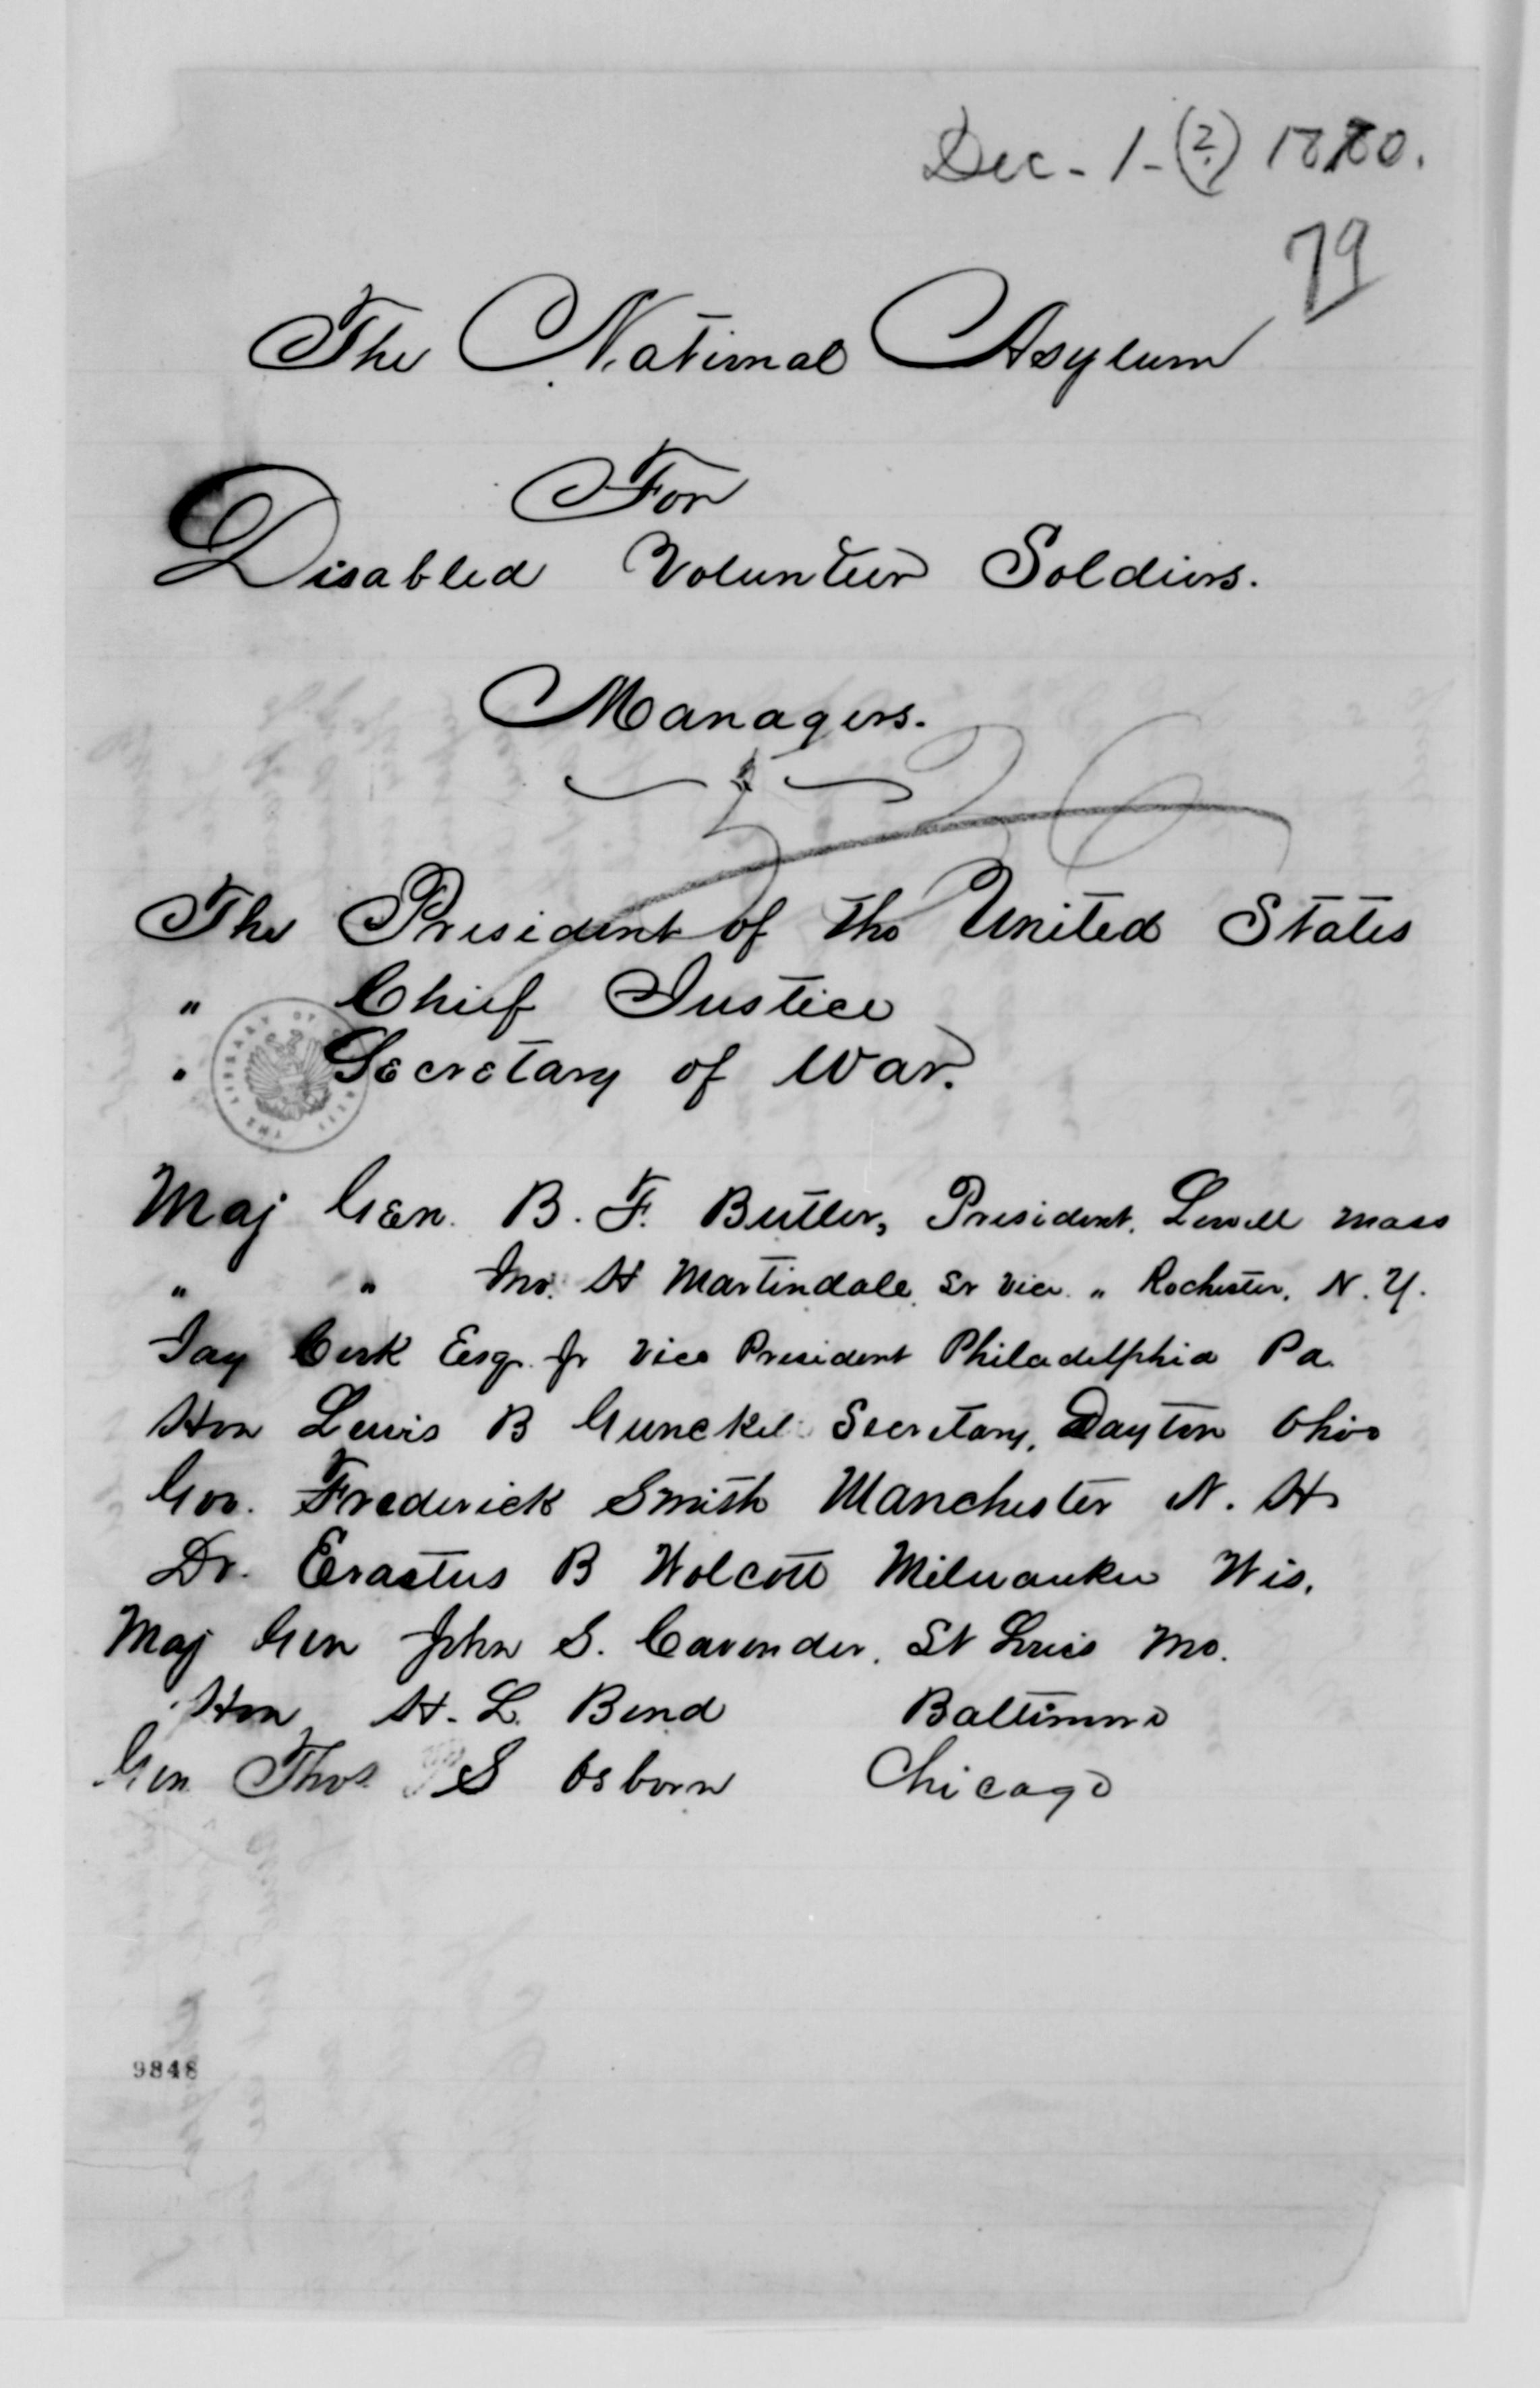 Dec - 1 - (?) 1880.
79
The National Asylum
For
Disabled Volunteer Soldiers.
Managers.
The President of the United States
" Chief Justice
" Secretary of War.
Maj Gen. B. F. Butler, President, Lowell Mass
" " Jno. H Martindale, Sr Vice. " Rochester, N. Y.
Jay Cook Esq. Jr Vice President Philadelphia Pa.
Hon Lewis B Gunckel Secretary, Dayton Ohio
Gov. Frederick Smith Manchester N. H.
Dr. Erastus B Wolcott Milwaukee Wis.
Maj Gen John S. Cavender, St Louis Mo.
Hon H. L. Bond Baltimore
Gen Thos S Osborn Chicago
9848